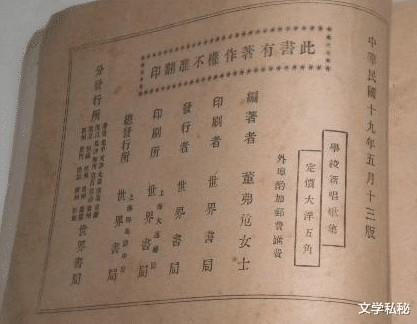 中華民國十九年五月十三版
此書有著作權不准翻印
學校新唱歌集
定價大洋五角
外埠酌加郵費滙費
編著者 董弗危女士
印刷者 世界書局
發行者 世界書局
印刷所 世界書局
總發行所 世界書局
分發行所 世界書局
文学私秘